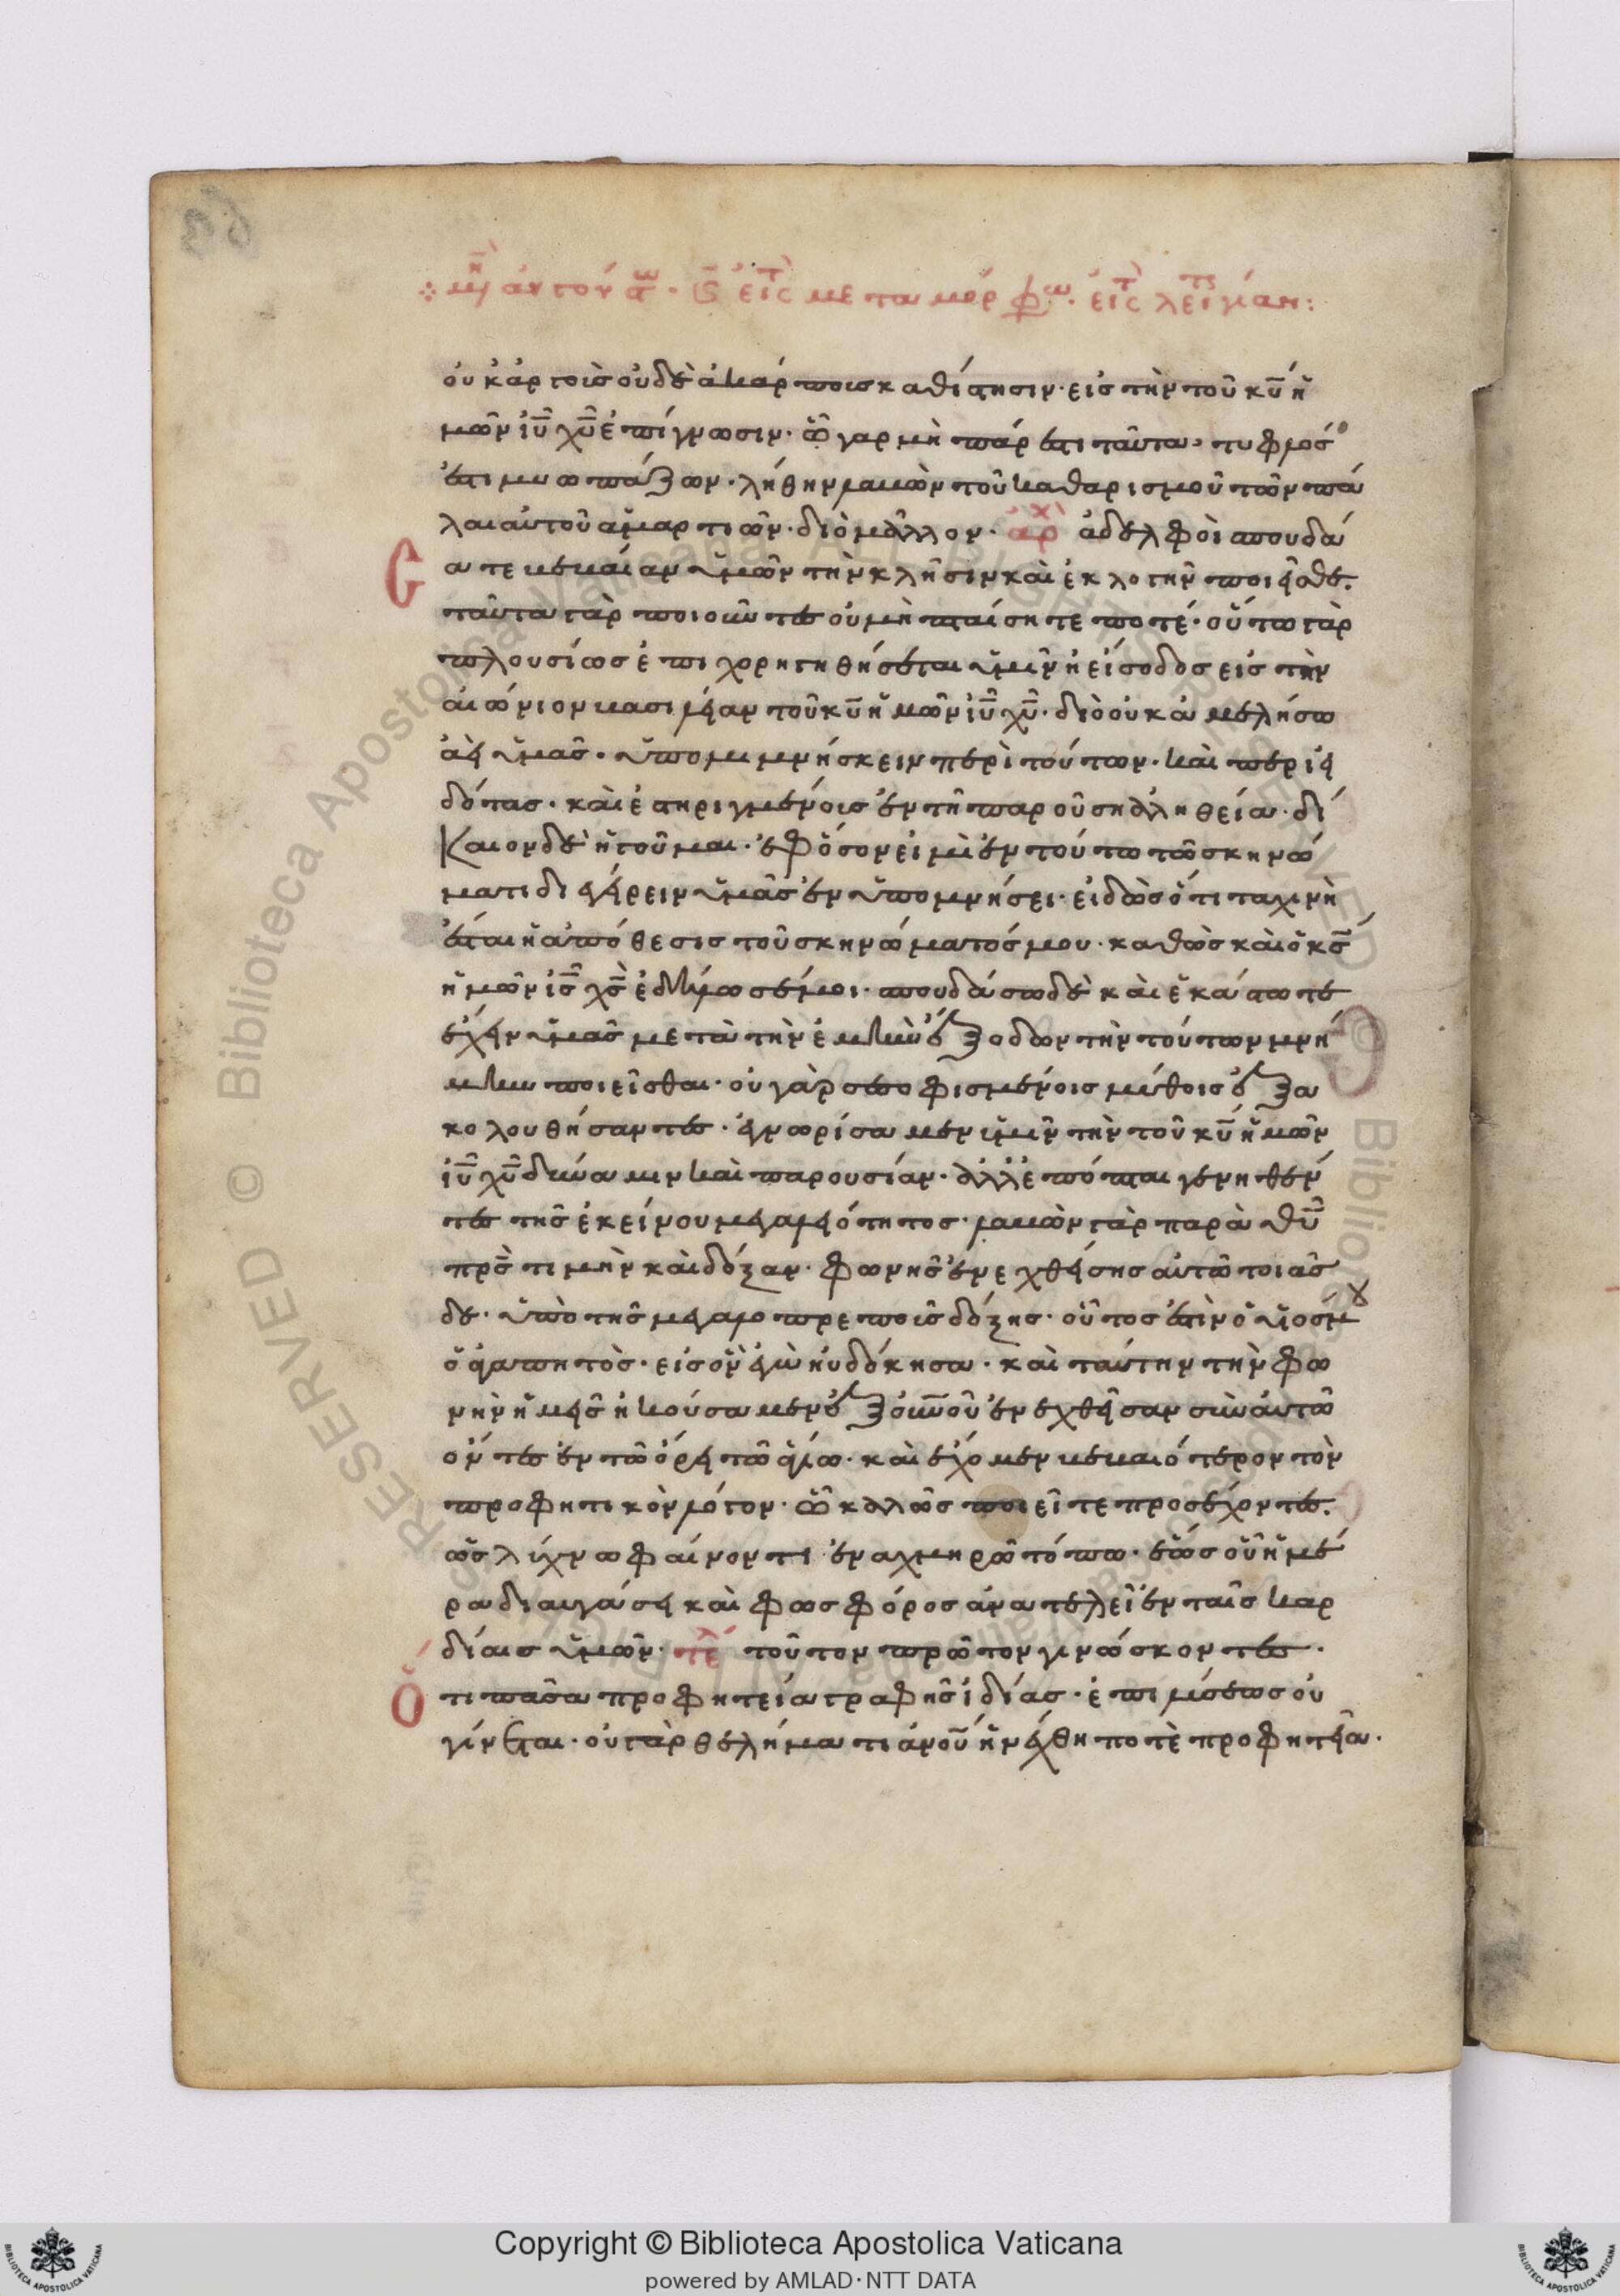 οὐκ ἀργοὺσ οὐδὲ ἀκάρπουσ καθίστησιν· εἰσ τὴν τοῦ κ̅υ̅ ἡ
μῶν ἰ̅υ̅ χ̅υ̅ ἐπίγνωσιν· ὧ γαρ μὴ πάρεστι ταῦτα· τυφλόσ
ἐστι μυωπάζων· λήθην λαβὼν τοῦ καθαρισμοῦ τῶν πά
λαι αὐτοῦ ἁμαρτιῶν· διὸ μᾶλλον· ἀρχ ἀδελφοὶ σπουδά
σατε βεβαίαν ὑμῶν τὴν κλῆσιν καὶ ἐκλογὴν ποιεῖσθε.
ταῦτα γὰρ ποιοῦντεσ οὐ μὴ πταίσητε ποτέ· οὕτω γὰρ
πλουσίωσ ἐπιχορηγηθήσεται ὑμῖν ἡ εἴσοδοσ εἰσ τὴν
αἰώνιον βασιλείαν τοῦ κ̅υ̅ ἡμῶν ἰ̅υ̅ χ̅υ̅· διὸ οὐκ ἀμελήσω
ἀεὶ ὑμᾶσ· ὑπομιμνήσκειν περὶ τούτων· καὶ περ εἰ
δότασ· καὶ ἐστηριγμένοισ ἐν τῆ παρούση ἀληθεία· δί
καιον δὲ ἡγοῦμαι· ἐφ ὅσον εἰμὶ ἐν τούτω τῶ σκηνώ
ματι διεγείρειν ὑμᾶσ ἐν ὑπομνήσει· εἰδὼσ ὅτι ταχινὴ
ἐσται ἡ ἀπόθεσισ τοῦ σκηνώματόσ μου· καθὼσ καὶ ὁ κ̅σ̅
ἡμῶν ἰ̅σ̅ χ̅σ̅ ἐδήλωσέ μοι· σπουδάσω δὲ καὶ ἑκάστοτε
ἔχειν ὑμᾶσ μετὰ τὴν ἐμὴν ἔξοδον τὴν τούτων μνή
μην ποιεῖσθαι· οὐ γὰρ σεσοφισμένοισ μύθοισ ἐξα
κολουθήσαντεσ· ἐγνωρίσαμεν ὑμῖν τὴν τοῦ κ̅υ̅ ἡμῶν
ἰ̅υ̅ χ̅υ̅ δύναμιν καὶ παρουσίαν· ἀλλ ἐπόπται γενηθέν
τεσ τῆσ ἐκείνου μεγαλειότητοσ· λαβὼν γὰρ παρὰ θ̅υ̅
π̅ρ̅σ̅ τιμὴν καὶ δόξαν· φωνῆσ ἐνεχθείσησ αὐτῶ τοιᾶσ
δε· ὑπὸ τῆσ μεγαλοπρεποῦσ δόξησ· οὗτοσ ἐστὶν ὁ υἱοσ μ
ὁ ἀγαπητὸσ· εἰσ ὃν ἐγὼ ηὐδόκησα· καὶ ταύτην τὴν φω
νὴν ἡμεῖσ ἠκούσαμεν ἐξ ο̅υ̅ν̅οῦ ἐνεχθεῖσαν σὺν αὐτῶ
ὄντεσ ἐν τῶ ὄρει τῶ ἁγίω· καὶ ἔχομεν βεβαιότερον τὸν
προφητικὸν λόγον· ὧ καλῶσ ποιεῖτε προσέχοντεσ.
ὡσ λύχνω φαίνοντι ἐν αχμηρῶ τόπω· ἕωσ οὗ ἡμέ
ρα διαυγάσει καὶ φωσφόροσ ἀνατελεῖ ἐν ταῖσ καρ
δίαισ ὑμῶν· τελ τοῦτον πρῶτον γινώσκοντεσ·
ὅτι πᾶσα προφητεία γραφῆσ ἰδίασ· ἐπιλύσεωσ οὐ
γίνεται· οὐ γὰρ θελήματι ἀνο̅υ̅ ἠνέχθη ποτὲ προφητεία·